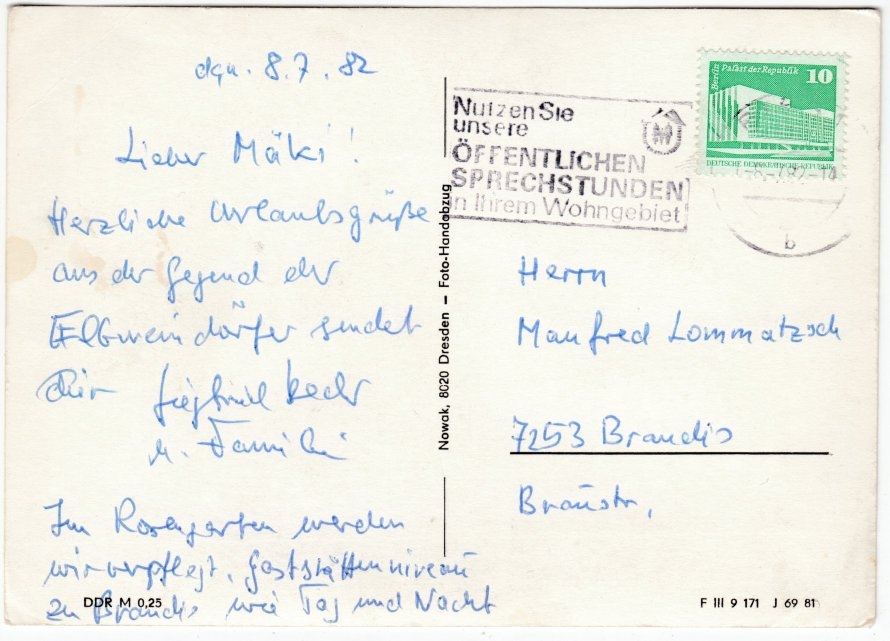 dgn. 8.7.82
Lieber Mäki!
Herzliche Urlaubsgrüße
aus der Gegend der
Elbweindörfer sendet
Dir Siegfried
u. Familie
Im Rosengarten werden
wir verpflegt. Gaststättenniveau
zu Brandis wie Tag und Nacht
DDR M 0,25
Nowak, 8020 Dresden – Foto-Handabzug
Nutzen Sie
unsere
ÖFFENTLICHEN
SPRECHSTUNDEN
in Ihrem Wohngebiet
Berlin Palast der Republik 10
DEUTSCHE DEMOKRATISCHE REPUBLIK
b
Herrn
Manfred Lommatzsch
7253 Brandis
Braustr.
F III 9 171 J 69 81